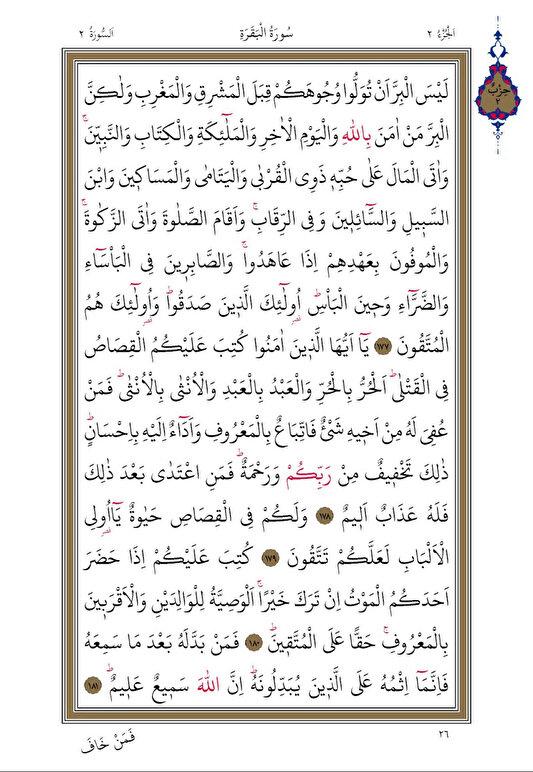 اَلْجُزْءُ ٢
سُورَةُ الْبَقَرَةِ
اَلسُّورَةُ ٢
حِزْبٌ
٢
لَيْسَ الْبِرَّ اَنْ تُوَلُّوا وُجُوهَكُمْ قِبَلَ الْمَشْرِقِ وَالْمَغْرِبِ وَلٰكِنَّ
الْبِرَّ مَنْ اٰمَنَ بِاللّٰهِ وَالْيَوْمِ الْاٰخِرِ وَالْمَلٰٓئِكَةِ وَالْكِتَابِ وَالنَّبِيّٖنَۚ
وَاٰتَى الْمَالَ عَلٰى حُبِّهٖ ذَوِي الْقُرْبٰى وَالْيَتَامٰى وَالْمَسَاكٖينَ وَابْنَ
السَّبٖيلِ وَالسَّٓائِلٖينَ وَفِي الرِّقَابِۚ وَاَقَامَ الصَّلٰوةَ وَاٰتَى الزَّكٰوةَۚ
وَالْمُوفُونَ بِعَهْدِهِمْ اِذَا عَاهَدُواۚ وَالصَّابِرٖينَ فِي الْبَأْسَٓاءِ
وَالضَّرَّٓاءِ وَحٖينَ الْبَأْسِۜ اُولٰٓئِكَ الَّذٖينَ صَدَقُواۜ وَاُولٰٓئِكَ هُمُ
الْمُتَّقُونَ ﴿١٧٧﴾ يَٓا اَيُّهَا الَّذٖينَ اٰمَنُوا كُتِبَ عَلَيْكُمُ الْقِصَاصُ
فِي الْقَتْلٰىۜ اَلْحُرُّ بِالْحُرِّ وَالْعَبْدُ بِالْعَبْدِ وَالْاُنْثٰى بِالْاُنْثٰىۜ فَمَنْ
عُفِيَ لَهُ مِنْ اَخٖيهِ شَيْءٌ فَاتِّبَاعٌ بِالْمَعْرُوفِ وَاَدَٓاءٌ اِلَيْهِ بِاِحْسَانٍۜ
ذٰلِكَ تَخْفٖيفٌ مِنْ رَبِّكُمْ وَرَحْمَةٌۜ فَمَنِ اعْتَدٰى بَعْدَ ذٰلِكَ
فَلَهُ عَذَابٌ اَلٖيمٌ ﴿١٧٨﴾ وَلَكُمْ فِي الْقِصَاصِ حَيٰوةٌ يَٓا اُو۬لِي
الْاَلْبَابِ لَعَلَّكُمْ تَتَّقُونَ ﴿١٧٩﴾ كُتِبَ عَلَيْكُمْ اِذَا حَضَرَ
اَحَدَكُمُ الْمَوْتُ اِنْ تَرَكَ خَيْرًاۚ اَلْوَصِيَّةُ لِلْوَالِدَيْنِ وَالْاَقْرَبٖينَ
بِالْمَعْرُوفِۚ حَقًّا عَلَى الْمُتَّقٖينَۜ ﴿١٨٠﴾ فَمَنْ بَدَّلَهُ بَعْدَ مَا سَمِعَهُ
فَاِنَّمَٓا اِثْمُهُ عَلَى الَّذٖينَ يُبَدِّلُونَهُۜ اِنَّ اللّٰهَ سَمٖيعٌ عَلٖيمٌۜ ﴿١٨١﴾
٢٦
فَمَنْ خَافَ